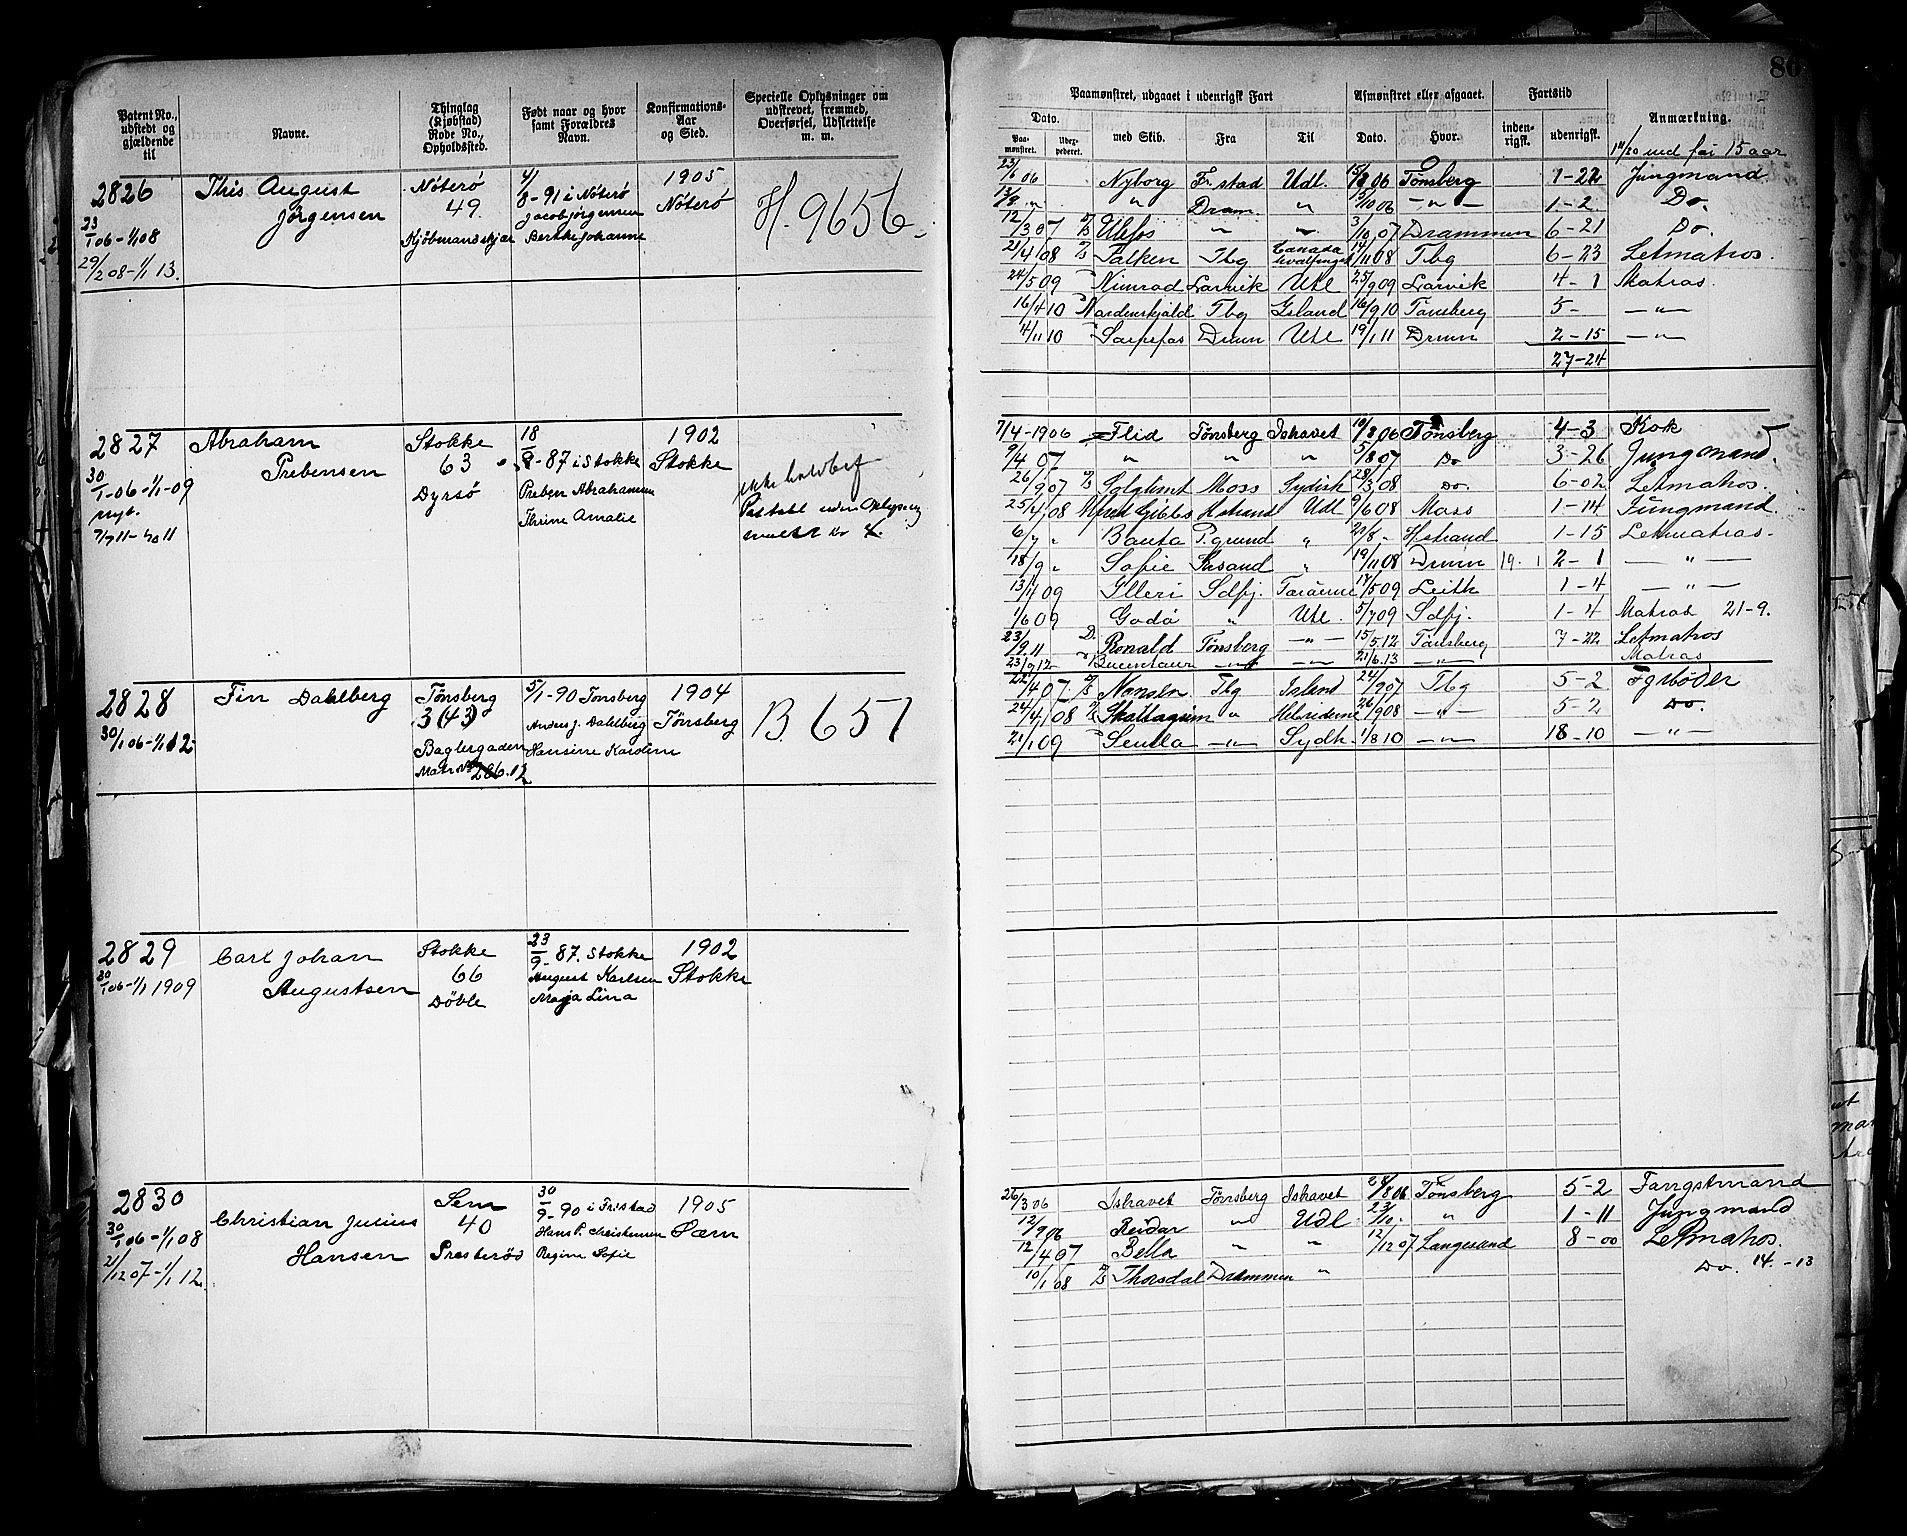 80
Patent No., udstedt og gjældende til
Navne.
Thinglag (Kjøbstad) Rode No., Opholdssted.
Født naar og hvor samt Forældres Navn.
Konfirmations-Aar og Sted.
Specielle Oplysninger om udskrevet, fremmed, Overførsel, Udslettelse m. m.
Paamønstret, udgaaet i udenrigsk Fart
Afmønstret eller afgaaet.
Fartstid
Anmærkning.
Dato.
Paamønstret.
med Skib.
Fra
Til
Dato.
Hvor.
indenrigsk.
udenrigsk.
2826 This August Nøterø 4/8-91 i Nøterø 1905 H. 9656
Jörgensen 49. Jacob Jörgensen Nøterø
23/1 06 - 1/1 08 Kjöbmandskjær Berthe Johanne
29/2 08 - 1/1 13.
23/1 06 Nyborg Fr.stad Udl. 15/8 06 Tønsberg 1-22 Jungmand
13/8 " " Dram. " 15/10 06 - " - 1-2. Do.
12/3 07 Ulefos " " 3/10 07 Drammen 6-21 Do.
21/4 08 Falken Tbg Canada hvalfangst 14/11 08 Tbg 6-23 Letmatros.
24/5 09 Nimrod Larvik Utl 25/9 09 Larvik 4-1 Matros.
16/4 10 Nordenskjöld Tbg Island 16/9 10 Tønsberg 5- - " -
4/11 10 Sarpfos Drmn Utl 19/1 11 Drmn 2-15 - " -
27-24
2827 Abraham Stokke 18/8-87 i Stokke 1902
Prebensen 63 Preben Abrahamsen Stokke
30/1-06-1/1-09 Dyrsö Thrine Amalie
7/4-1906 Flid Tønsberg Ishavet 19/8 06 Tønsberg 4-3 Kok
9/4 07 " " " 5/8 07 Do 3-26 Jungmand.
26/9 07 Solglimt Moss Sydish 28/3 08 Do. 6-02 Letmatros.
25/4 08 Alfred Gibbs Hstrand Udl 9/6 08 Moss 1-14 Jungmand
6/7 " Bauta P.grund " 21/8 - Hstrand 1-15 Letmatros.
18/9 " Sofie Krsand " 19/11 08 Drmn 19. 1 2-1 - " -
13/4 09 Illeri Sdfj. Færøerne 17/5 09 Leith 1-4 - " -
1/6 09 Godø " Utl. 5/7 09 Sdfj. 1-4 Matros 21-9.
23/9 11 D. Ronald Tønsberg - " - 15/5 12 Tønsberg 7-22 Letmatros
23/9 12 Bucentaur - " - - " - 21/6.13 - " - Matros
2828 Fin Dahlberg Tønsberg 5/1-90 Tønsberg 1904 B. 657
3(43) Anders J. Dahlberg Tønsberg
30/1 06-1/1 12. Baglergaden Hansine Karoline
Matr No 286.12
22/4 07. Nansen Tbg Island 24/9 07 Tbg 5-2 Fyrbøder
24/4 08 Skallagrim " Hebriderne 26/9 08 - " - 5-2 Do.
21/1 09 Seulla - " - Sydh. 1/8 10 - " - 18-10 - " -
2829 Carl Johan Stokke 23/9-87. Stokke 1902
30/1 06-1/1 1909 Augustsen 66 August Karlsen Stokke
Döble Maja Lina
2830 Christian Julius Sem 30/9-90 i Fr.stad 1905
30/1 06-1/1 08 Hansen 40 Hans P. Christensen Sæm
21/12 07-1/1 12. Presterød Regine Sofie
26/3 06 Ishavet Tønsberg Ishavet 28/8 06 Tønsberg 5-2 Fangstmand
12/9 06 Reidar " Udl. 23/10. " 1-11 Jungmand
12/4 07 Bella " " 12/12 07 Langesund 8-00 Letmatros.
10/1 08 Thorsdal Drammen " Do. 14.-13